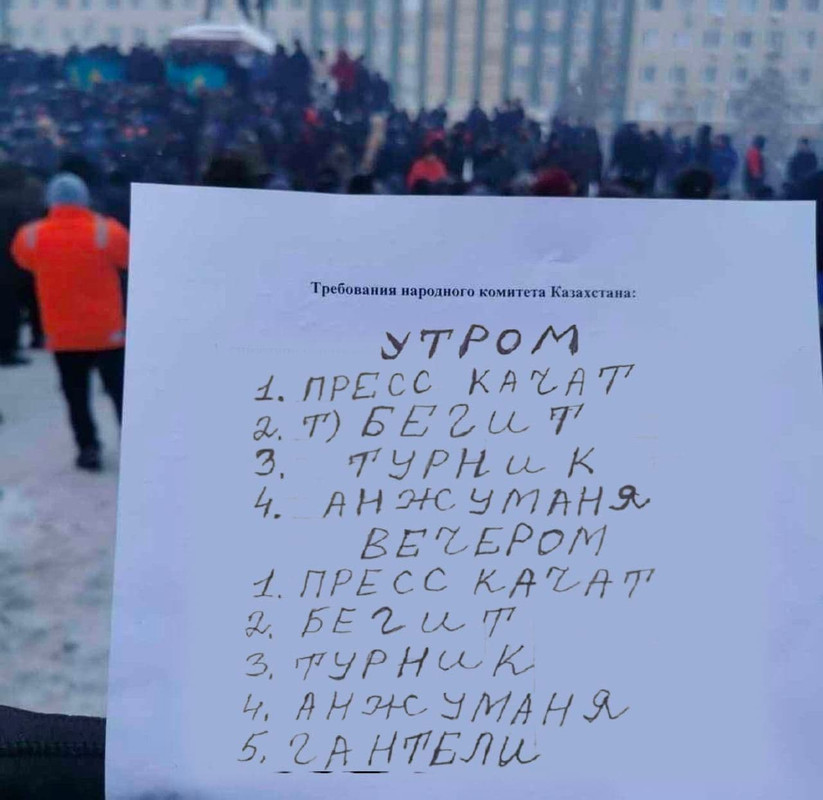 Требования народного комитета Казахстана:
УТРОМ
1. ПРЕСС КАЧАТ
2. Т) БЕГИТ
3. ТУРНИК
4. АНЖУМАНЯ
ВЕЧЕРОМ
1. ПРЕСС КАЧАТ
2. БЕГИТ
3. ТУРНИК
4. АНЖУМАНЯ
5. ГАНТЕЛИ